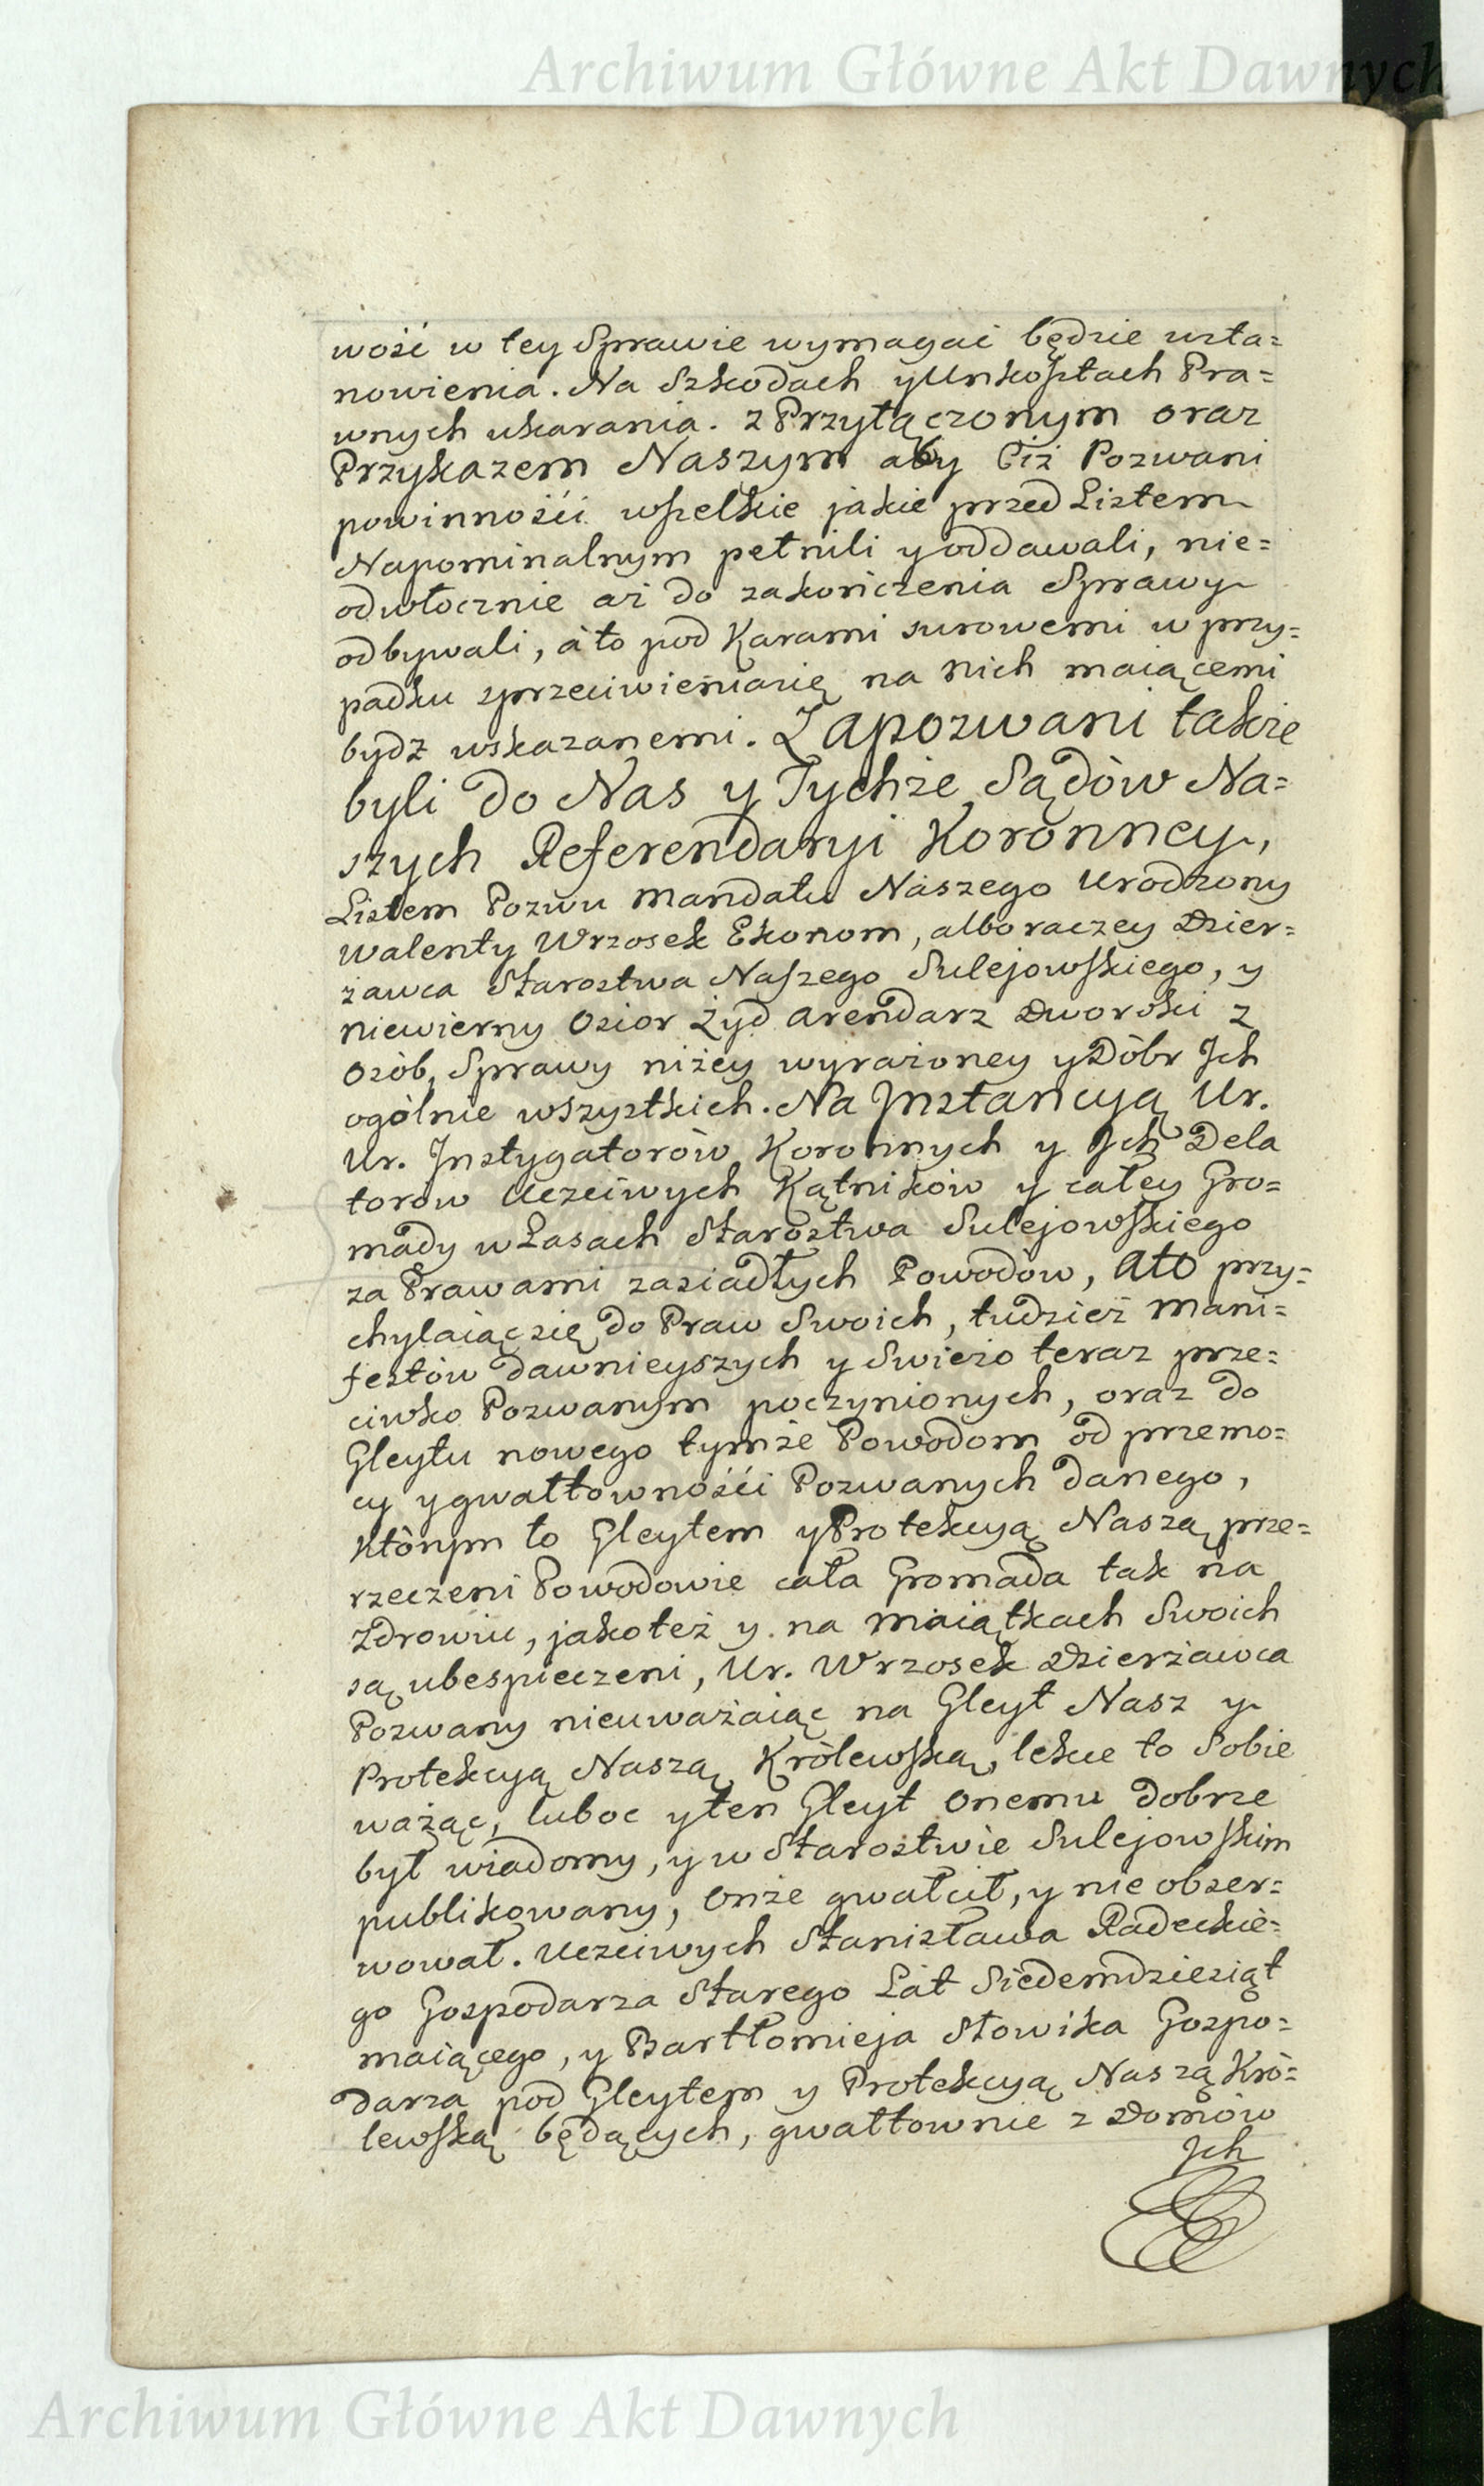 Archiwum Główne Akt Dawnych
wość w tey Sprawie wymagać będzie usta=
nowienia. Na Szkodach y Unkosztach Pra=
wnych ukarania. z Przyłączonym oraz
Przykazem Naszym aby Ciż Pozwani
powinnośći wszelkie jakie przed Listem
Napominalnym pełnili y oddawali, nie=
odwłocznie aż do zakończenia Sprawy
odbywali, á to pod Karami surowemi w przy=
padku zprzeciwieniasię na nich maiącemi
bydz wskazanemi. Zapozwani także
byli do Nas y Tychże Sądów Na=
szych Referendaryi Koronney,
Listem Pozwu Mandatu Naszego Urodzony
Walenty Wrzosek Ekonom, albo raczey Dzier=
żawca Starostwa Naszego Sulejowskiego, y
niewierny Osior Żyd Arendarz Dworski z
Osób, Sprawy niżey wyrażoney y Dóbr Jch
ogólnie wszystkich. Na Jnstancyą Ur.
Ur. Jnstygatorów Koronnych y Jch Dela
torow Uczciwych Kątników y całey Gro=
mady w Lasach Starostwa Sulejowskiego
za Prawami zasiadłych Powodów, Ato przy=
chylaiąc się do Praw Swoich, tudzież Mani=
festów dawnieyszych y Swieżo teraz prze=
ciwko Pozwanym poczynionych, oraz do
Gleytu nowego tymże Powodom od przemo=
cy y gwałtownośći Pozwanych danego,
którym to Gleytem y Protekcyą Naszą prze=
rzeczeni Powodowie cała Gromada tak na
Zdrowiu, jakoteż y na Maiątkach Swoich
są ubespieczeni, Ur. Wrzosek Dzierżawca
Pozwany nieuważaiąc na Gleyt Nasz y
Protekcyą Naszą Królewską, lekce to Sobie
ważąc, luboc y ten Gleyt Onemu dobrze
był wiadomy, y w Starostwie Sulejowskim
publikowany, Onże gwałcił, y nie obser=
wował. Uczciwych Stanisława Radeckie=
go Gospodarza Starego Lat Siedemdziesiąt
maiącego, y Bartłomieja Słowika Gospo=
darza pod Gleytem y Protekcyą Naszą Kró=
lewską będących, gwałtownie z Domów
Jch
Archiwum Główne Akt Dawnych